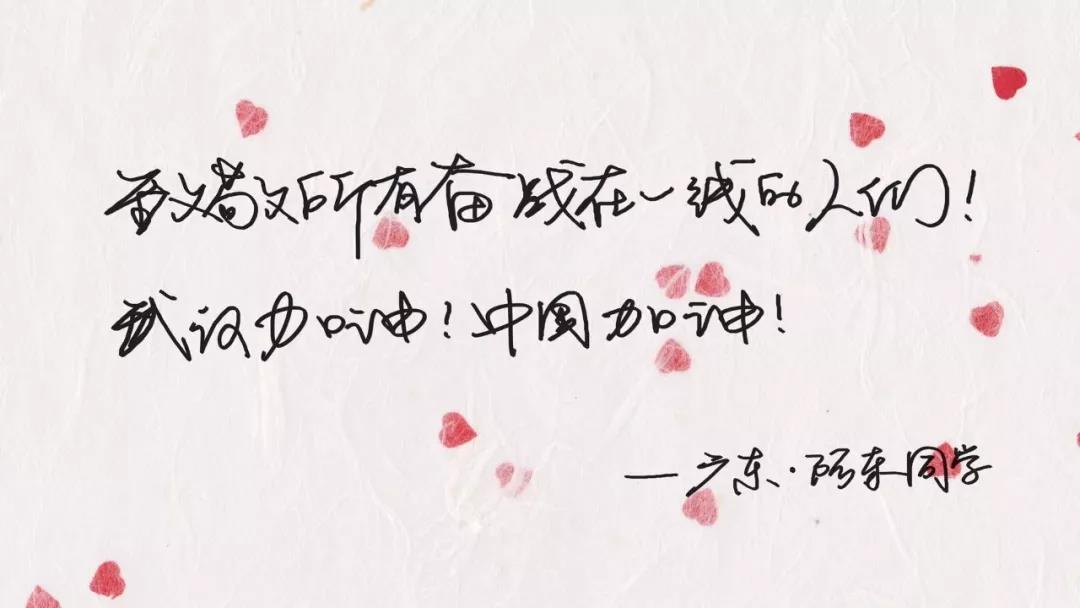 致敬所有奋战在一线的人们！
武汉加油！中国加油！
—广东·陈东同学